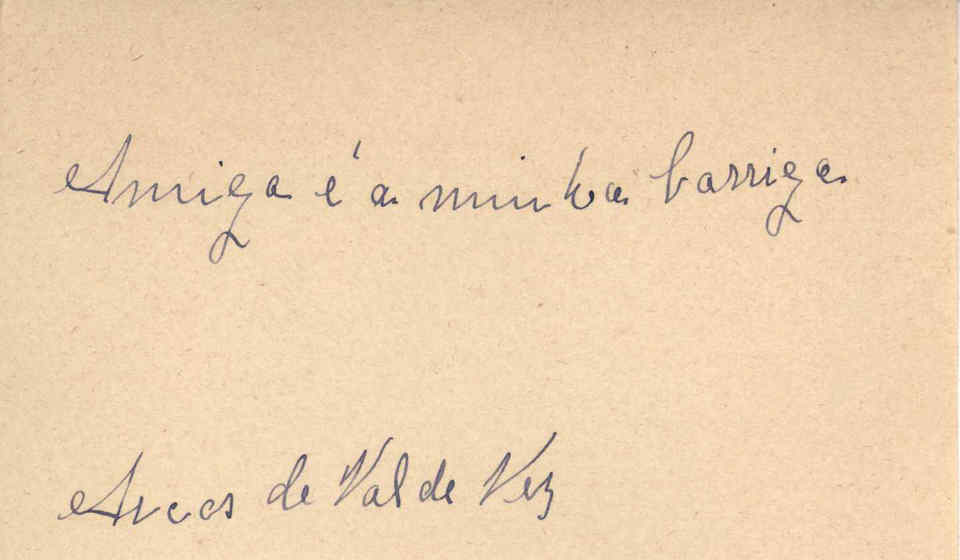 Amiga é a minha barriga
Arcos de Val de Vez